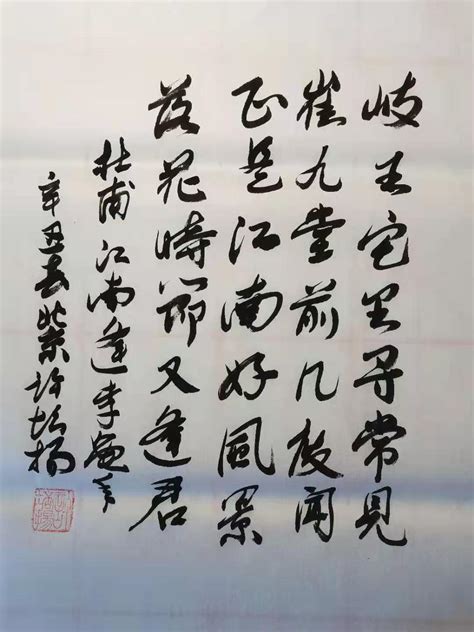 岐王宅里寻常見
崔九堂前几度闻
正是江南好風景
落花時節又逢君
杜甫江南逢李龟年
辛丑春紫许培楊